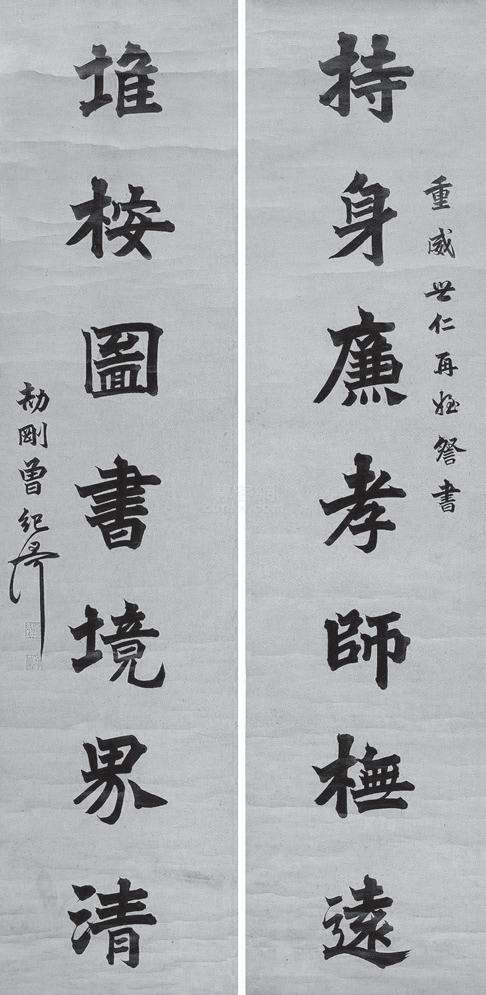 重威世仁再姪詧書
持身廉孝師橅遠
堆桉圖書境界清
劼剛曾紀澤